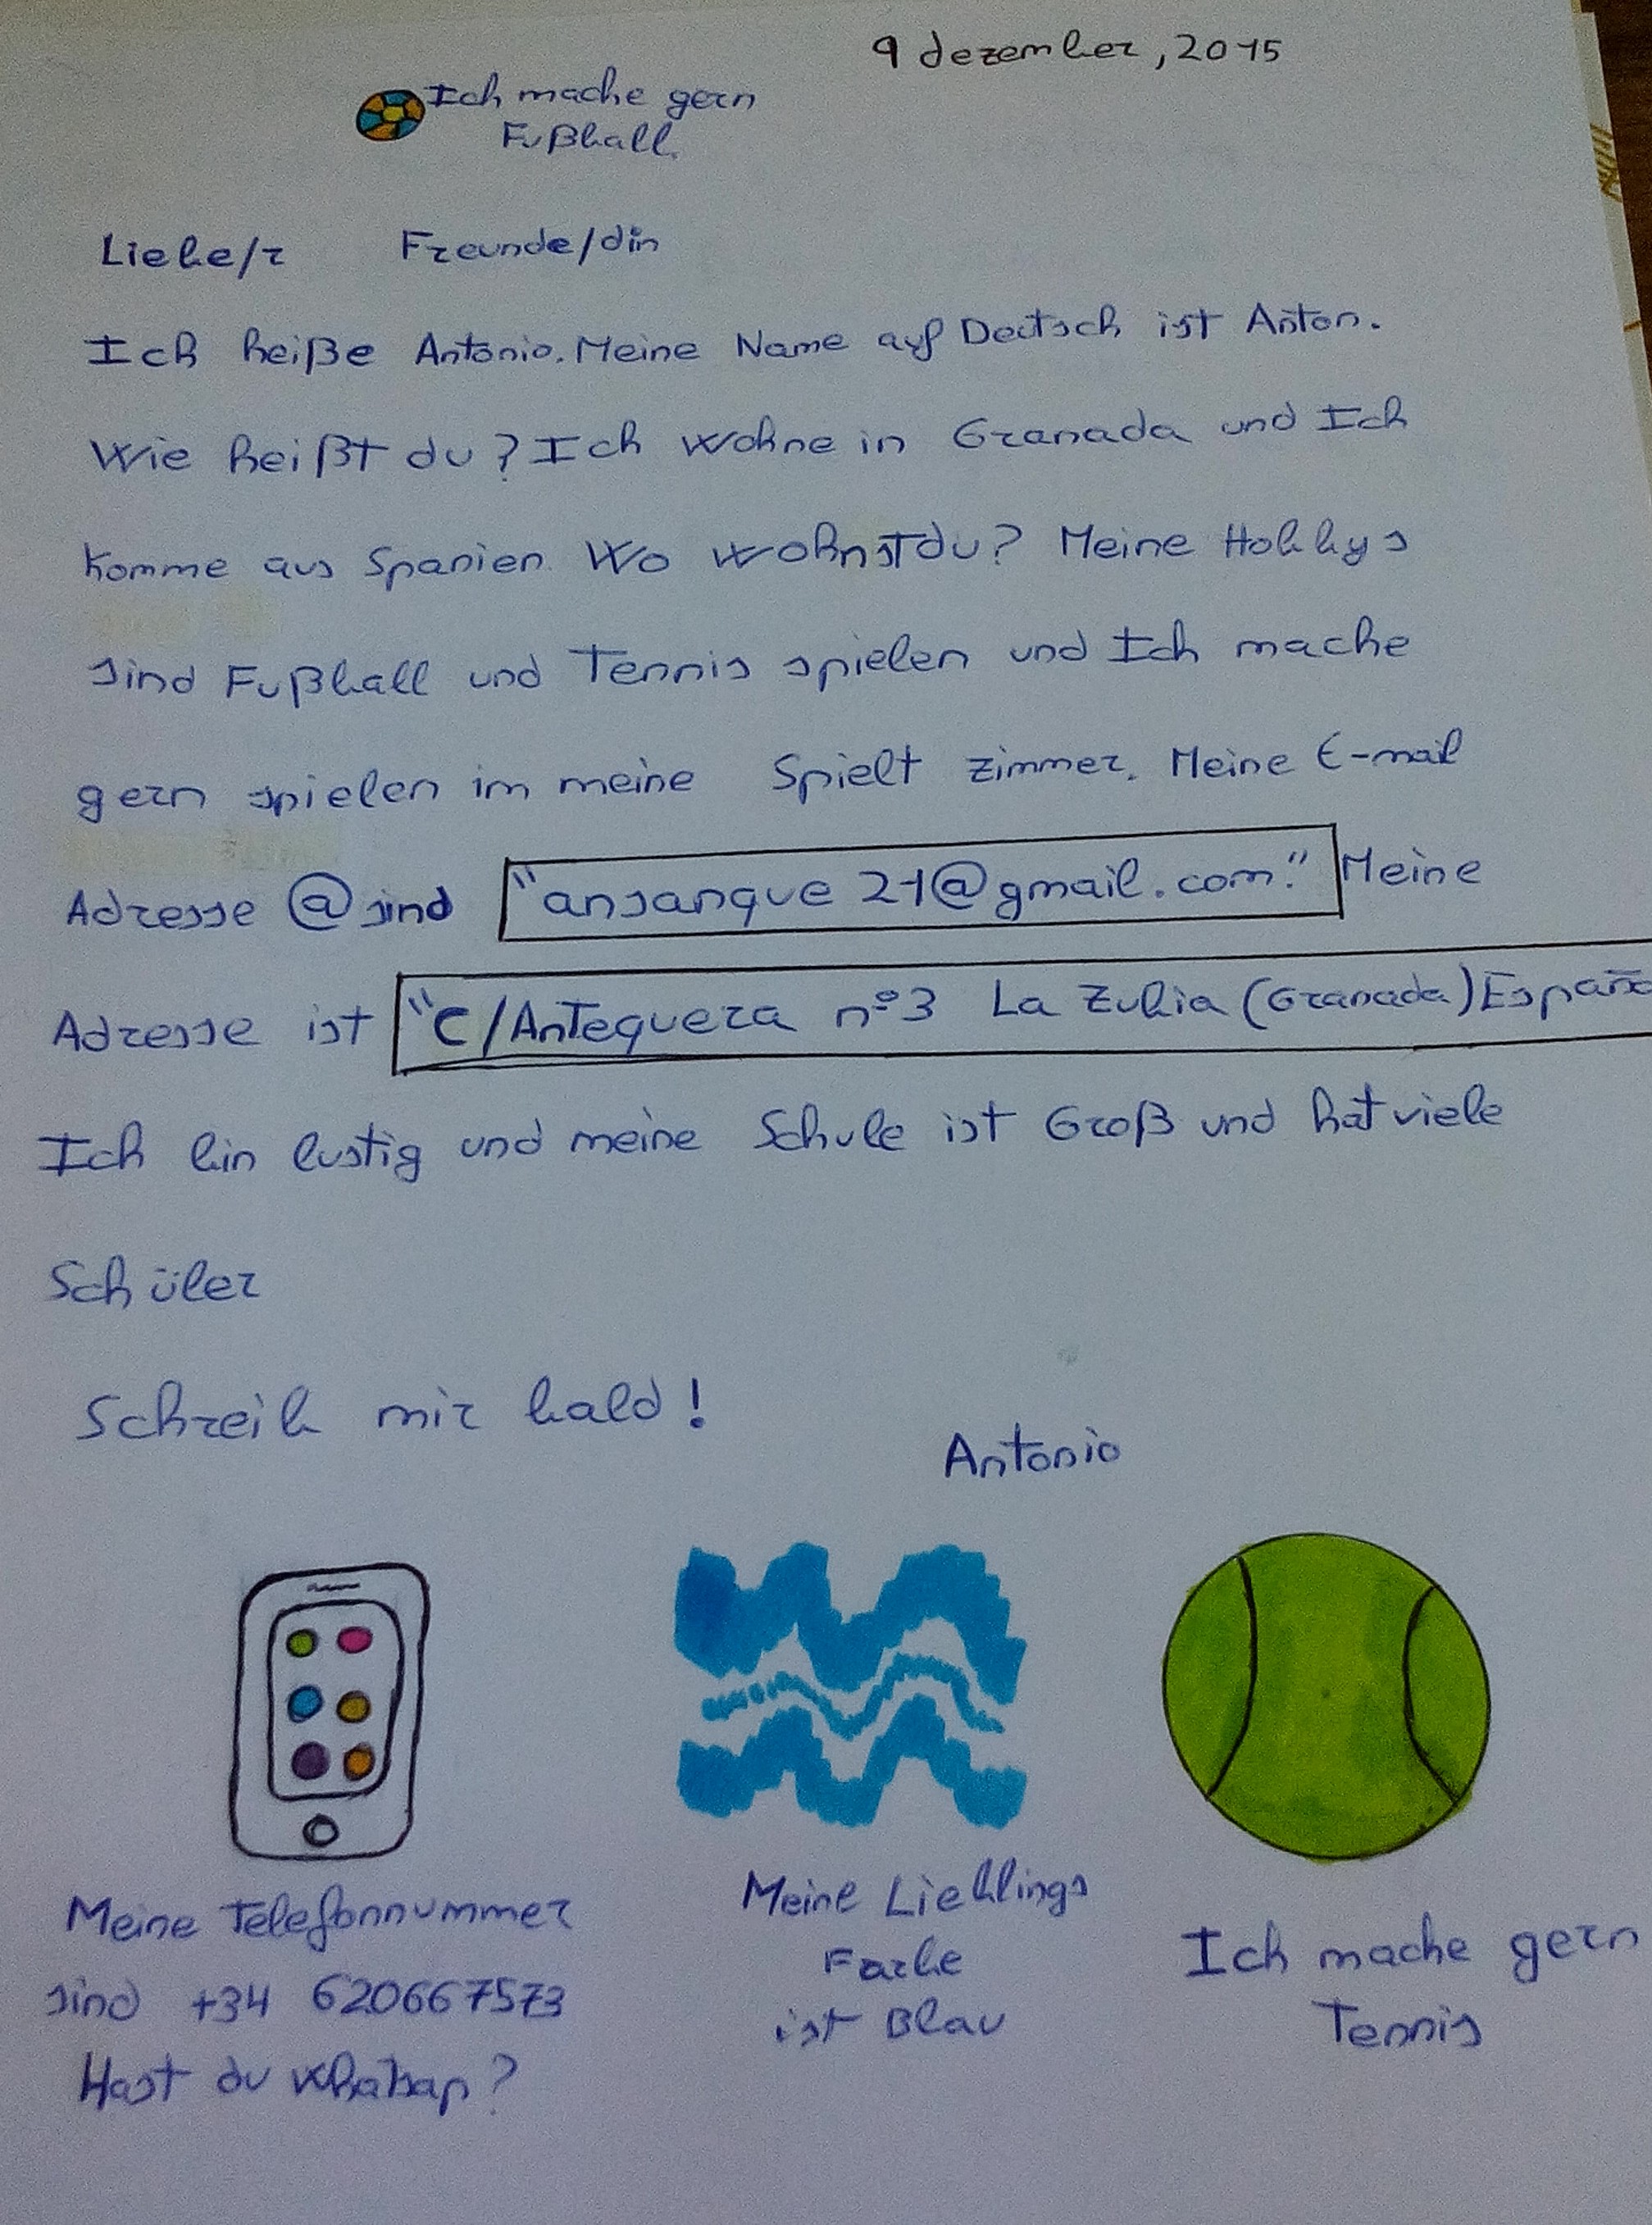 9 dezember, 2015
Ich mache gern
Fußball
Liebe/r Freunde/din
Ich heiße Antonio. Meine Name auf Deutsch ist Anton.
Wie heißt du? Ich wohne in Granada und Ich
komme aus Spanien. Wo wohnst du? Meine Hobbys
sind Fußball und Tennis spielen und Ich mache
gern spielen im meine Spielt zimmer. Meine E-mail
Adresse @ sind "ansanque 21@gmail.com." Meine
Adresse ist "C/Antequera nº3 La Zubia (Granada) España
Ich bin lustig und meine Schule ist Groß und hat viele
Schüler
Schreib mir bald!
Antonio
Meine Telefonnummer
sind +34 620667573
Hast du whatsap?
Meine Lieblings
Farbe
ist Blau
Ich mache gern
Tennis